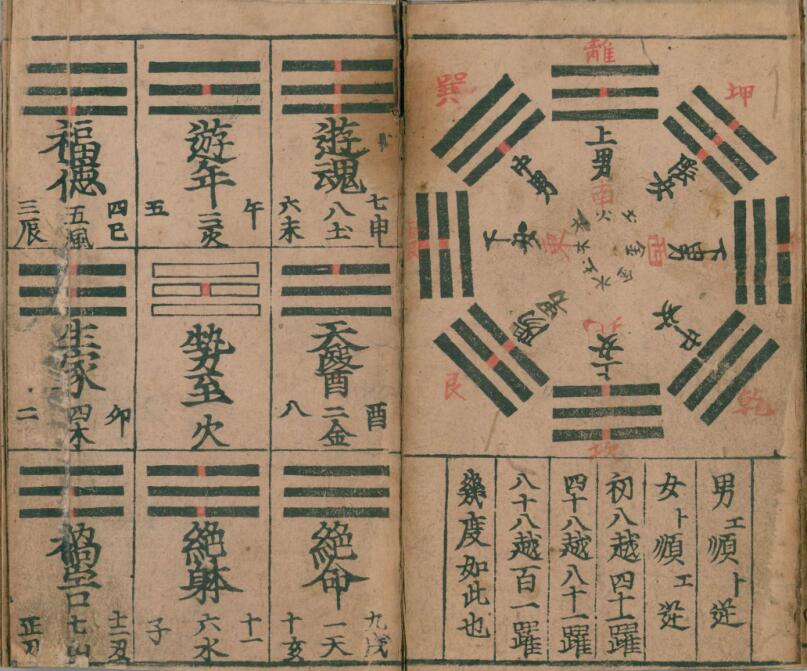 離
坤
乾
坎
艮
巽
上男
中男
下男
上女
南
東
西
北
男ヱ順ト逆
女ト順ヱ逆
初八越四十一躍
四十八越八十一躍
八十八越百一躍
幾度如此也
遊魂
七申
八土
六未
遊年
午
三火
五
福徳
四巳
五風
三辰
天醫
酉
二金
八
勢至
火
生家
卯
四木
二
絶命
九戌
一天
十亥
絶躰
十一
六水
子
禍害
十二丑
七山